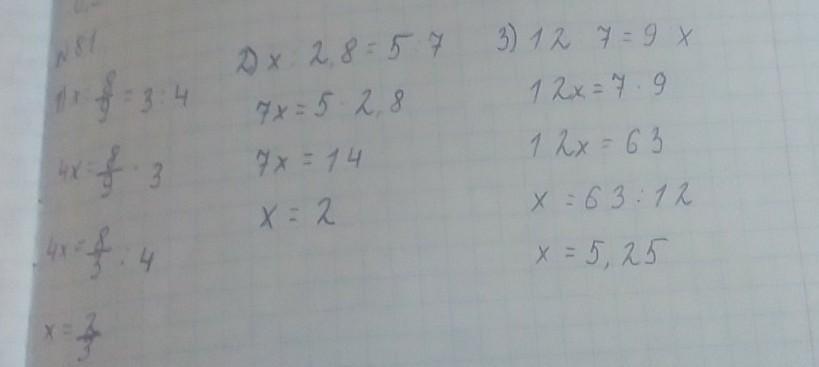 №81
1) x : 8/9 = 3 : 4
4x = 8/9 · 3
4x = 8/3 : 4
x = 2/3
2) x : 2,8 = 5 : 7
7x = 5 · 2,8
7x = 14
x = 2
3) 12 7 = 9 x
12x = 7 · 9
12x = 63
x = 63 : 12
x = 5,25